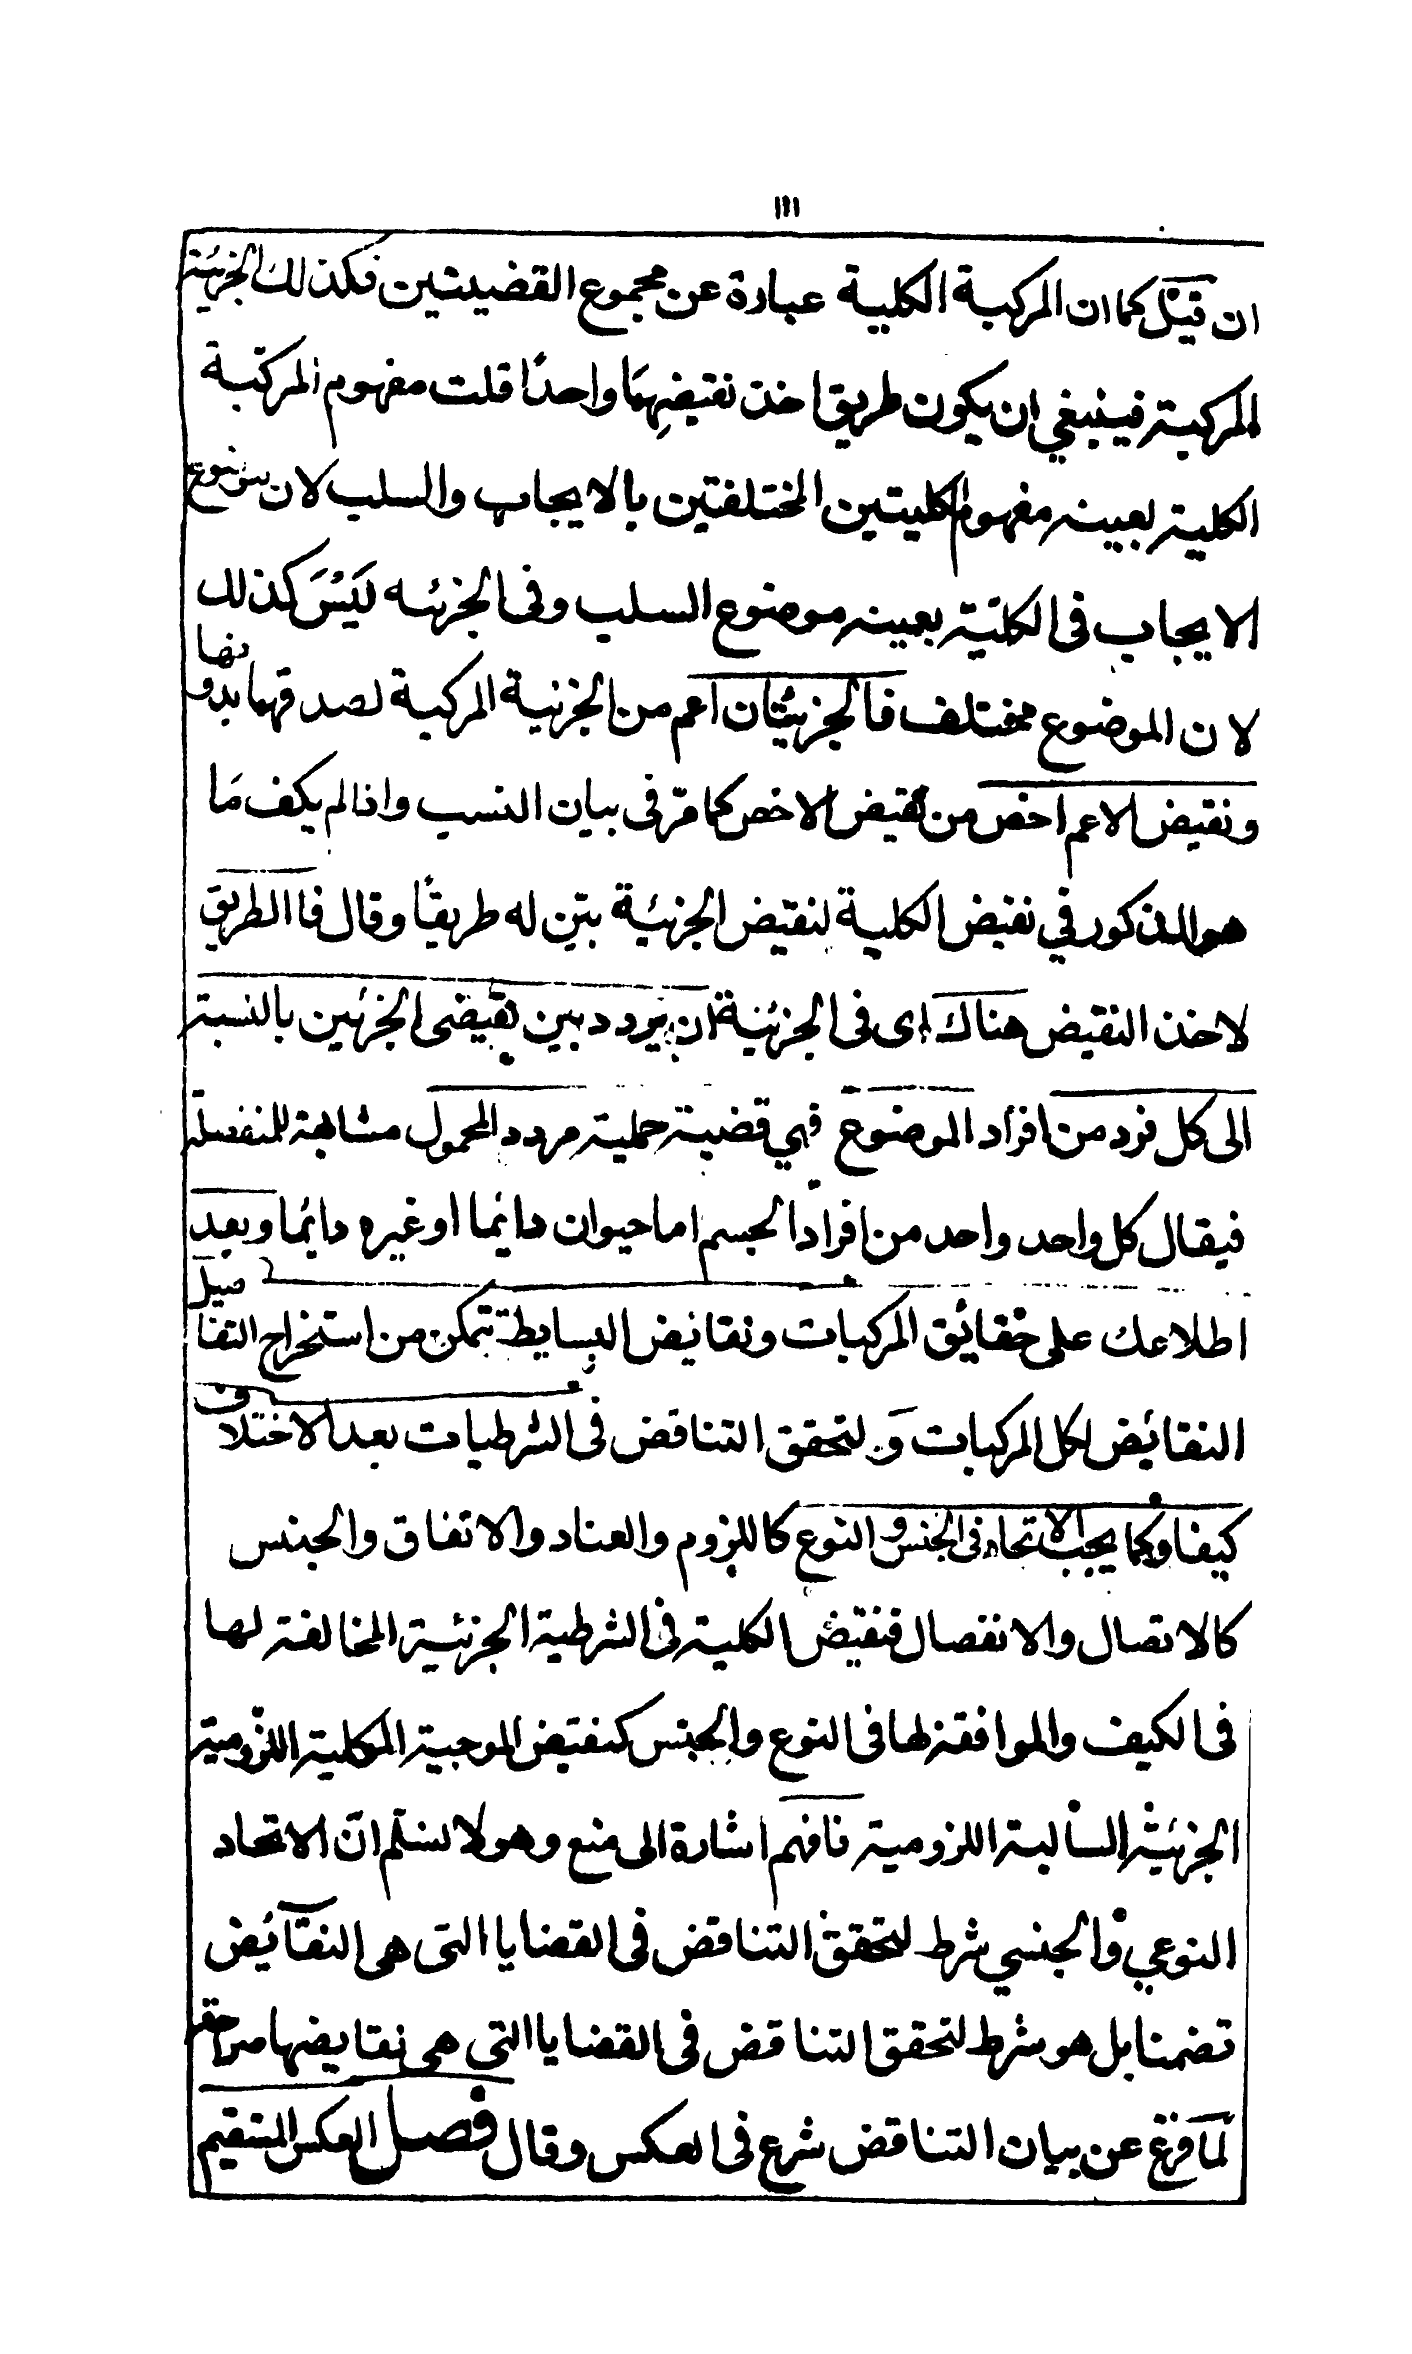 ١١١
ان قيل كما ان المركبة الكلية عبارة عن مجموع القضيتين فكذلك الجزئية
المركبة فينبغي ان يكون طريق اخذ نقيضهما واحدًا قلت مفهوم المركبة
الكلية بعينه مفهوم الكليتين المختلفتين بالايجاب والسلب لان موضوع
الايجاب فى الكلية بعينه موضوع السلب وفى الجزئيه ليس كذلك
لان الموضوع مختلف فالجزئيتان اعم من الجزئية المركبة لصدقهما بدونها
ونقيض الاعم اخص من نقيض الاخص كما مرّ فى بيان النسب واذا لم يكف ما
هو المذكور في نقيض الكلية لنقيض الجزئية بيّن له طريقًا وقال فاالطريق
لاخذ النقيض هناك اى فى الجزئية ان يردد بين نقيضى الجزئين بالنسبة
الى كل فرد من افراد الموضوع فهي قضية حملية مردد المحمول مشابهة للمنفصلة
فيقال كل واحد واحد من افراد الجسم اما حيوان دائما او غيره دائما وبعد
اطلاعك على حقائق المركبات ونقائض البسايط تتمكن من استخراج التفاصيل
النقائض لكل المركبات و لتحقق التناقض فى الشرطيات بعد الاختلاف
كيفا وكما يجب الاتحاد فى الجنس و النوع كاللزوم والعناد والاتفاق والجنس
كالاتصال والانفصال فنقيض الكلية فى الشرطية الجزئية المخالفة لها
فى الكيف والموافقة لها فى النوع والجنس كنقيض الموجبة الكلية اللزومية
الجزئية السالبة اللزومية فافهم اشارة الى منع وهو لا نسلّم انّ الاتحاد
النوعي والجنسي شرط لتحقق التناقض فى القضايا التى هى النقائض
تضمنا بل هو شرط لتحقق التناقض فى القضايا التي هى نقايضها صراحة
لما فرغ عن بيان التناقض شرع فى العكس وقال فصل العكس المستقيم